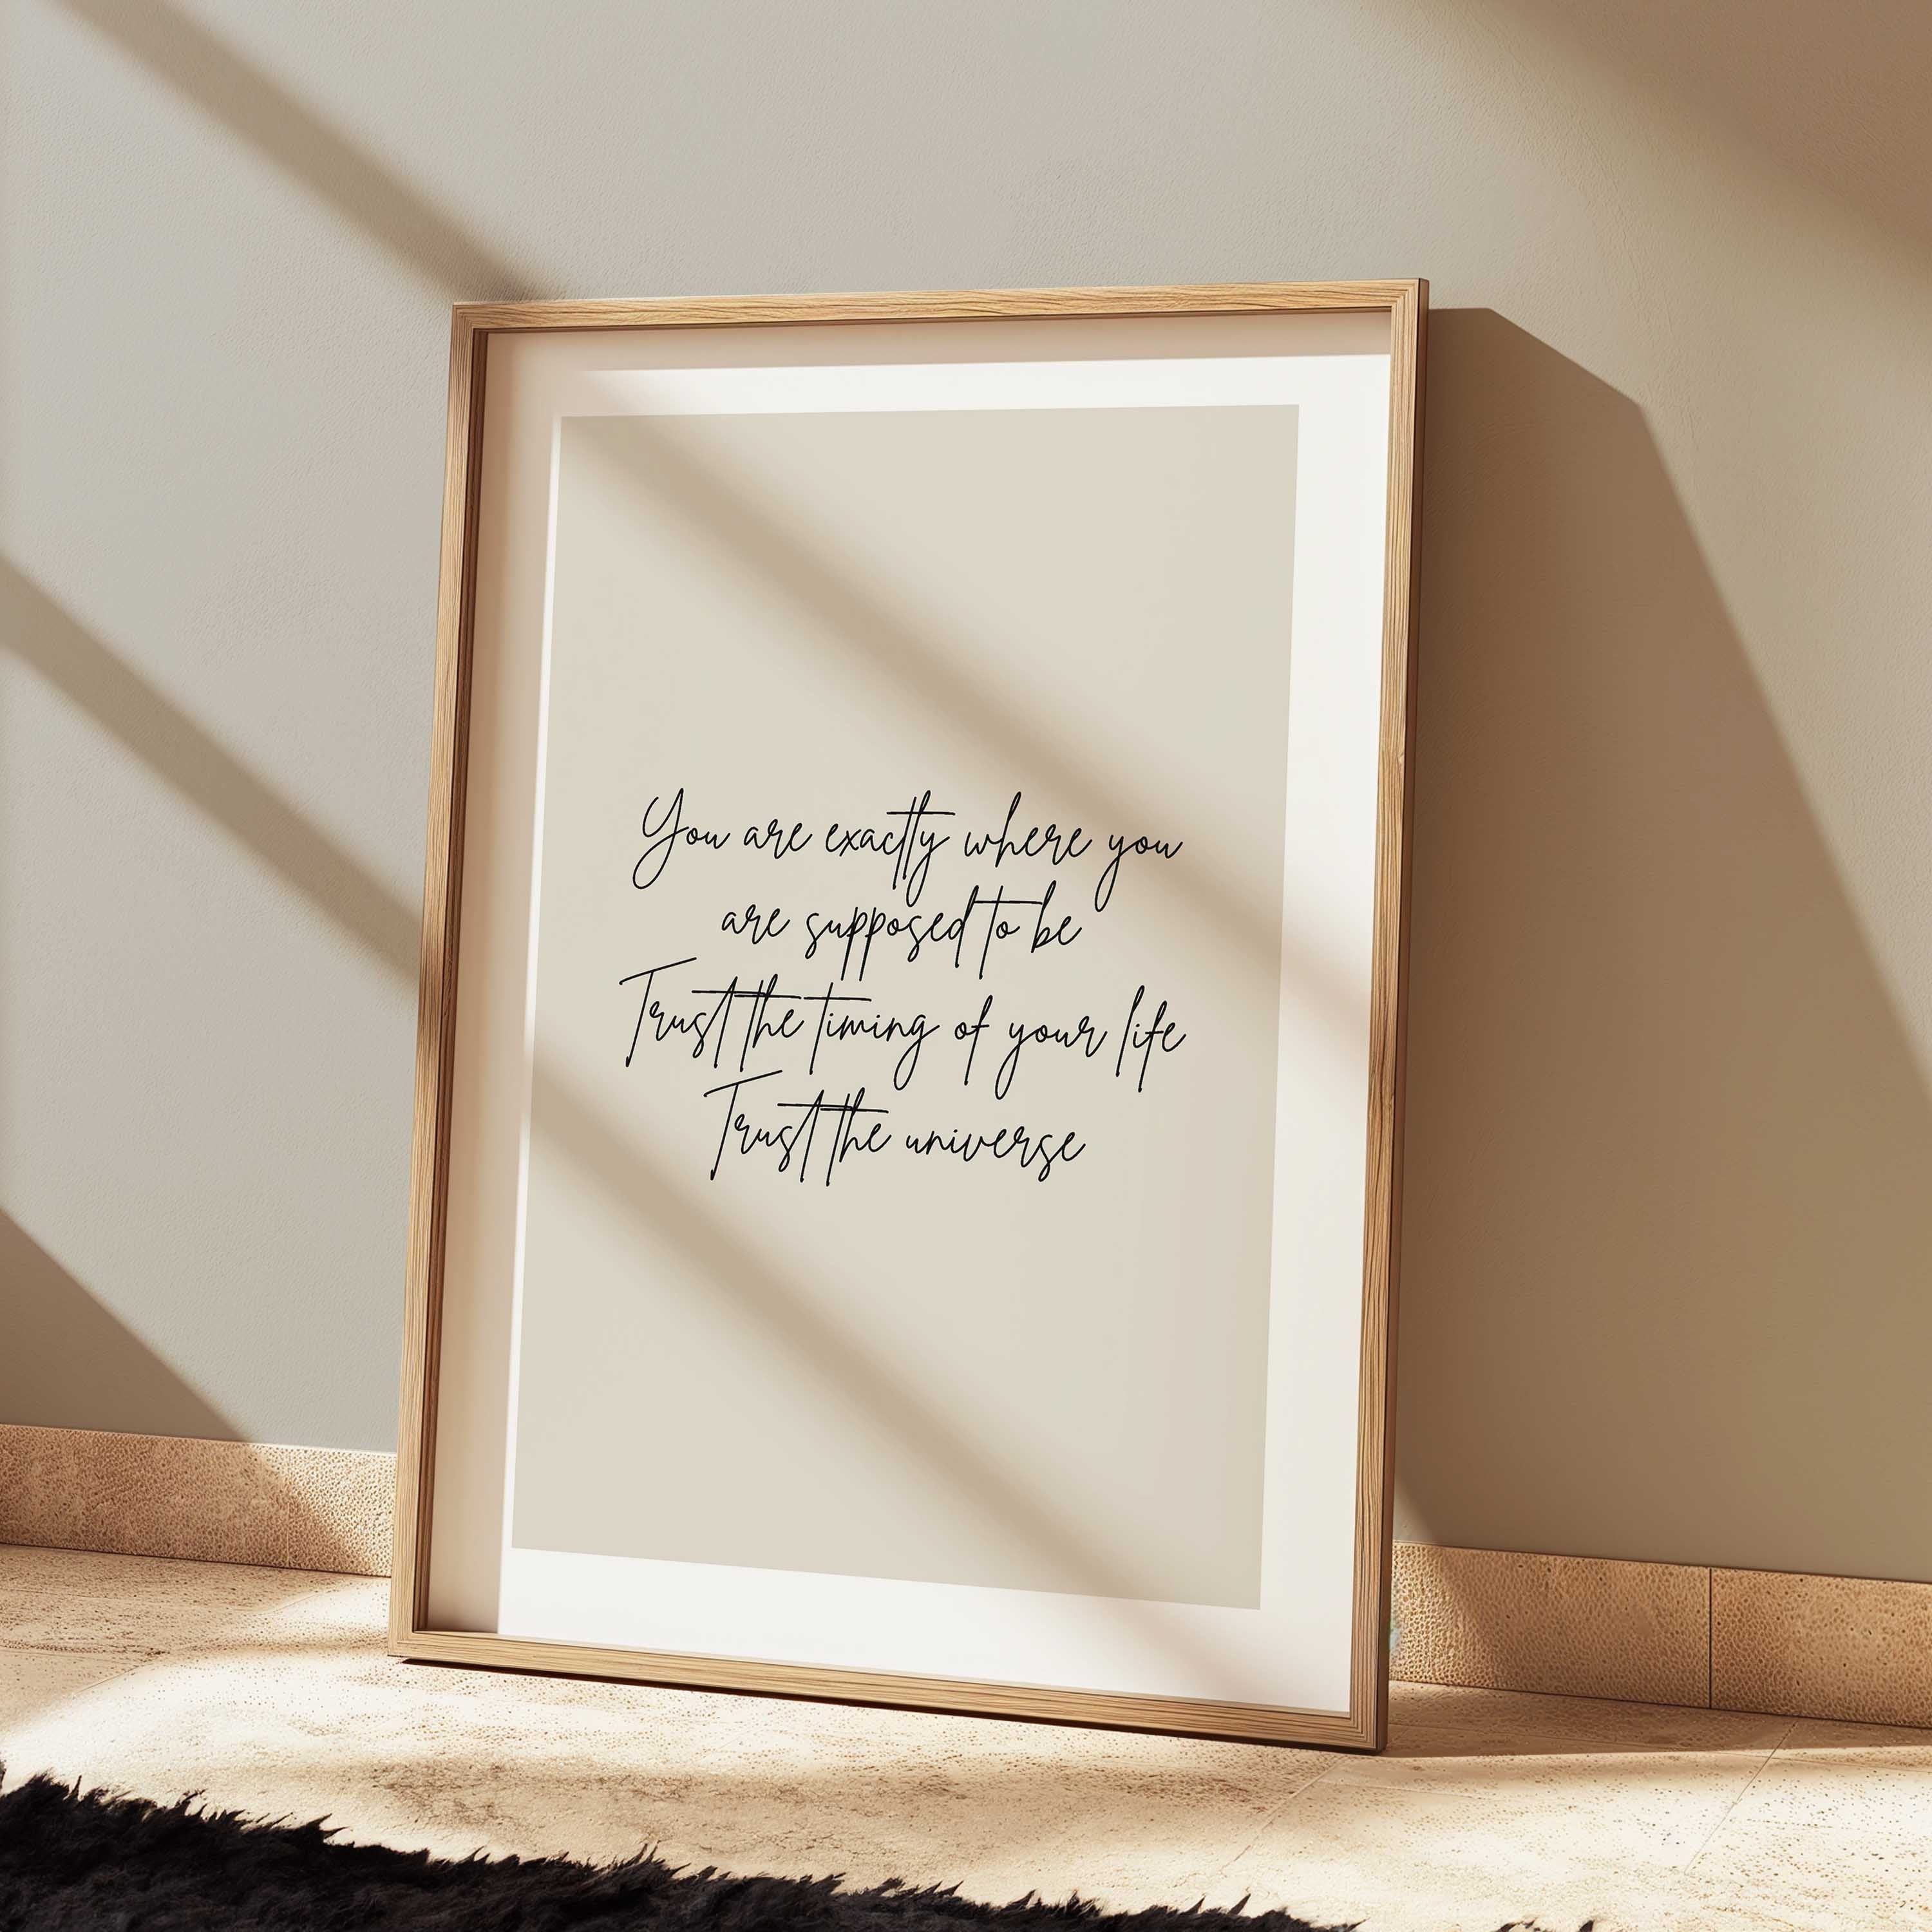 You are exactly where you
are supposed to be
Trust the timing of your life
Trust the universe